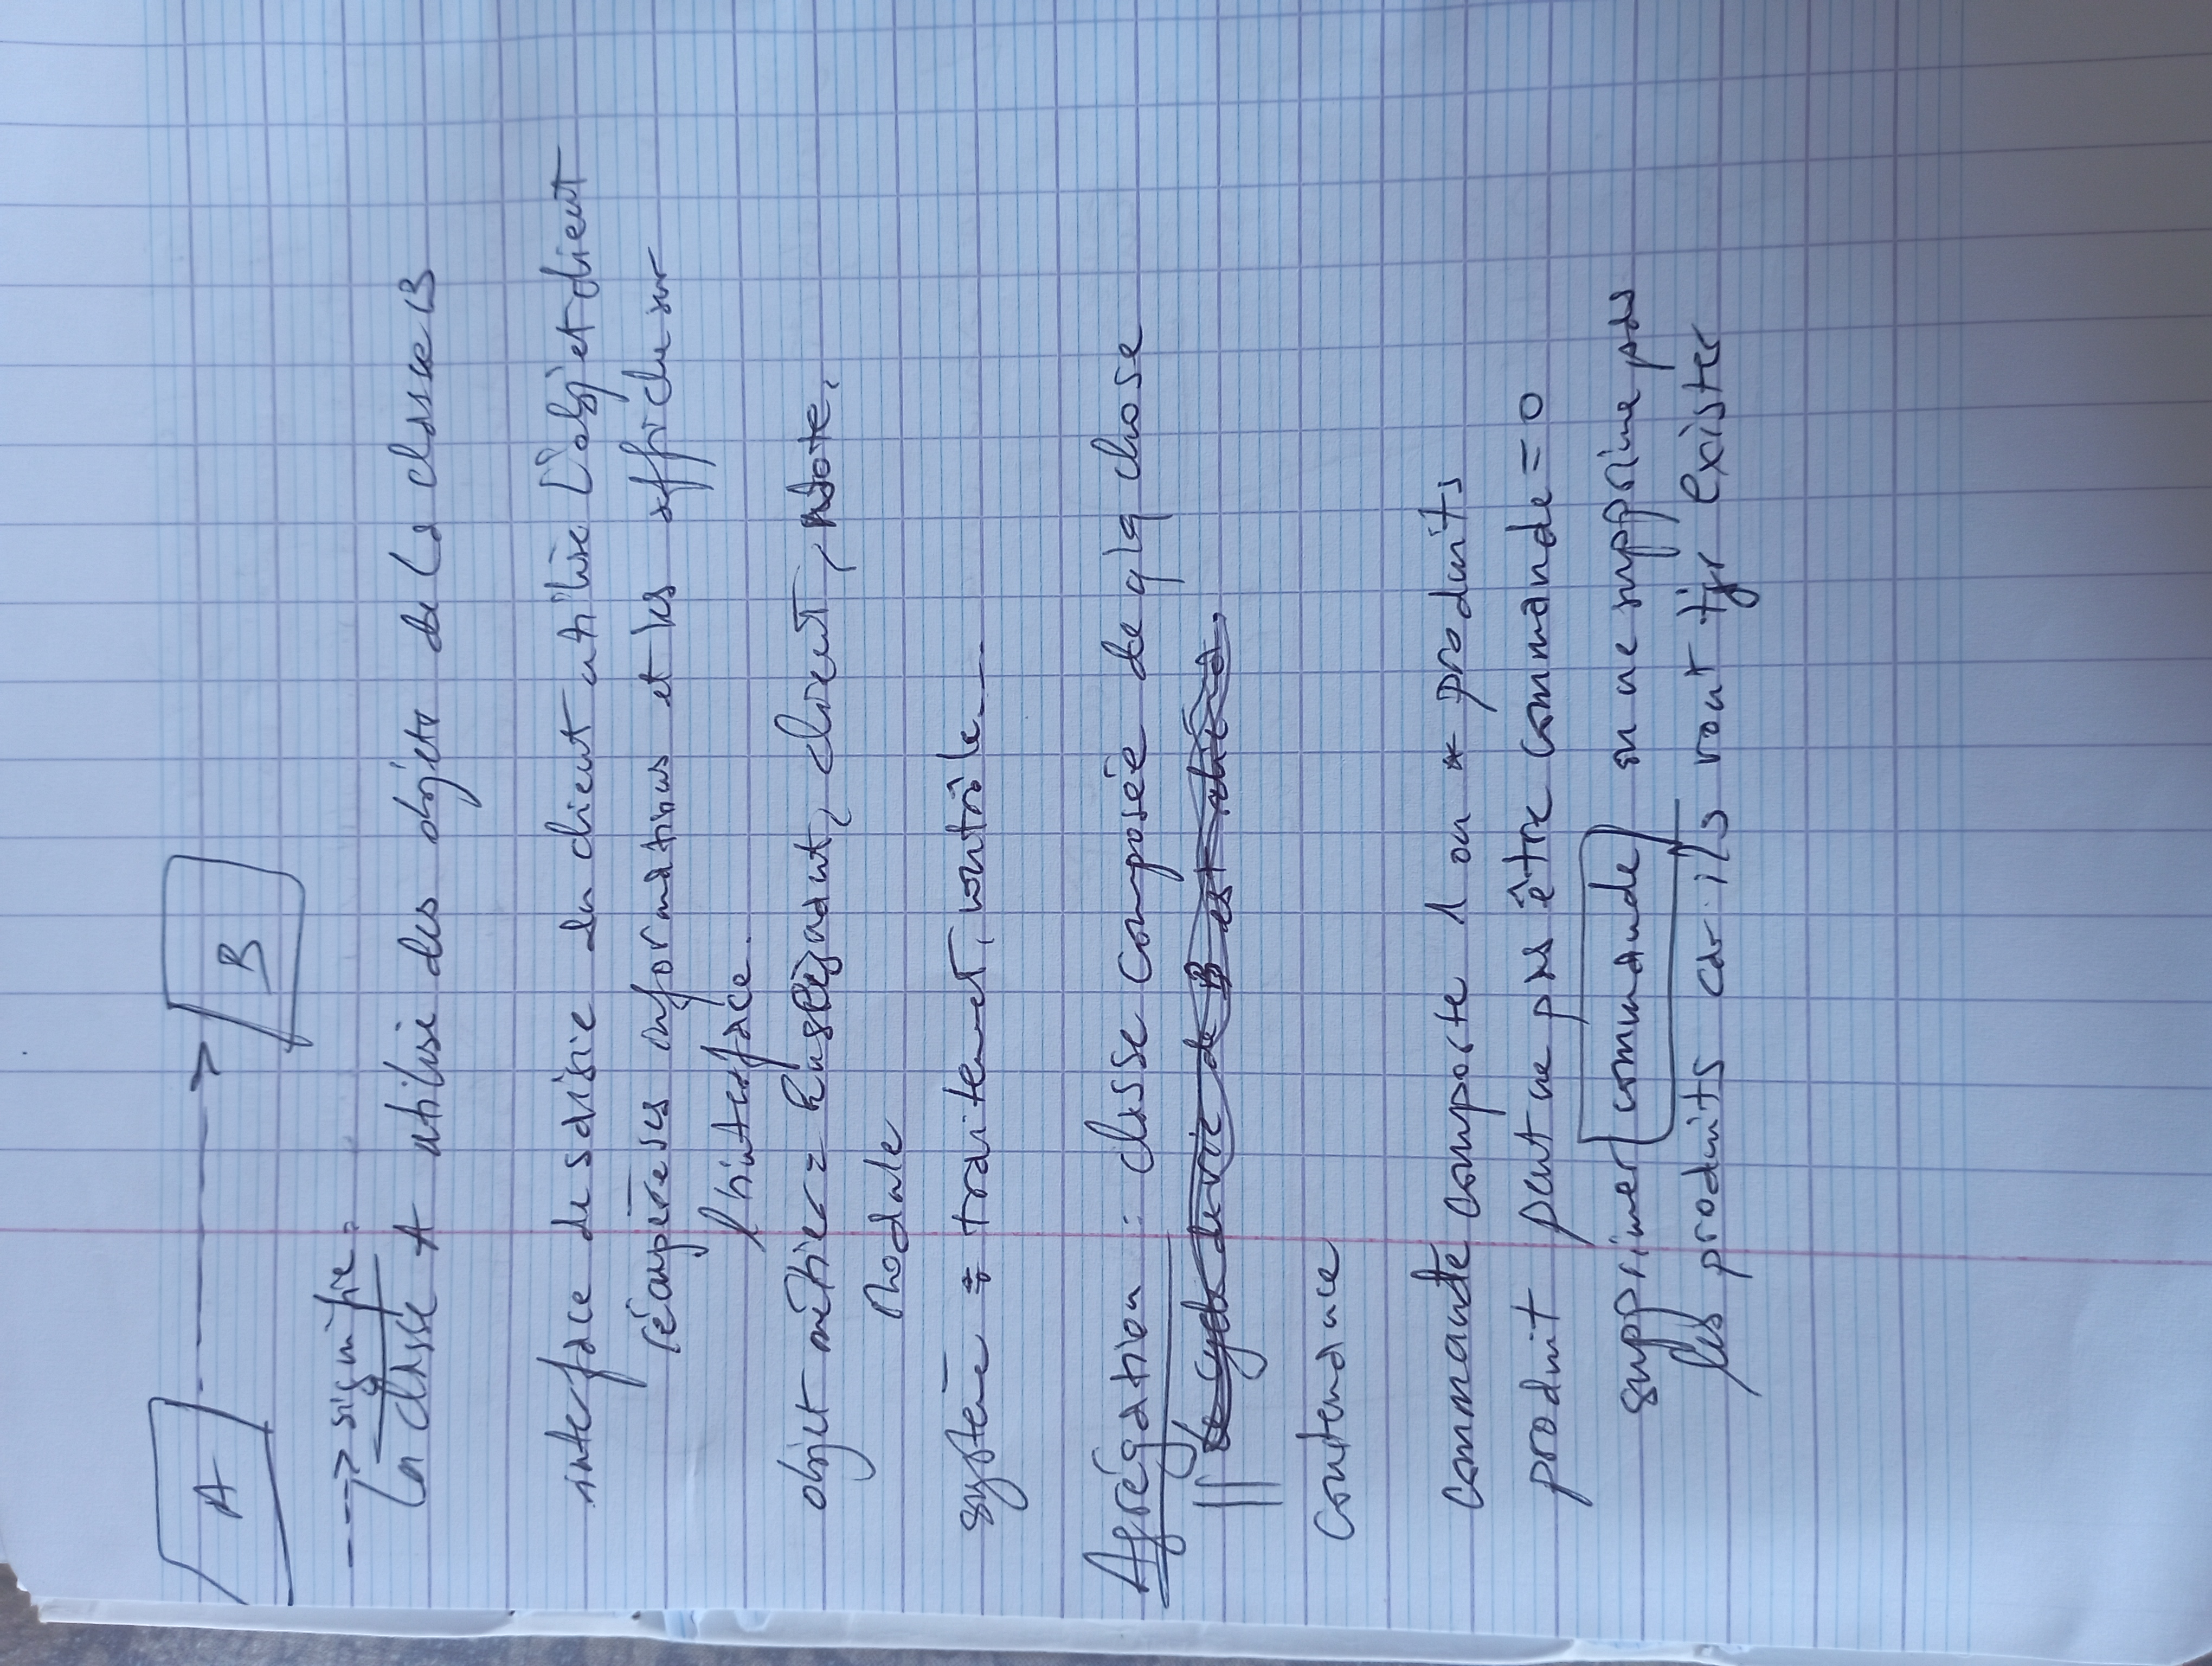 A -------> B
---> signifie :
la classe A utilise des objets de la classe B
interface de saisie du client utilise l'objet client
récupère ses informations et les affiche sur
l'interface.
objet métier = Enseignant, client, Note,
Module
système = traitement, contrôle
Agrégation : classe composée de qlq chose
||
Contenance
Commande composte 1 ou * produits
produit peut ne pas être commande = 0
supprimer commande on ne supprime pas
les produits car ils vont tjr exister